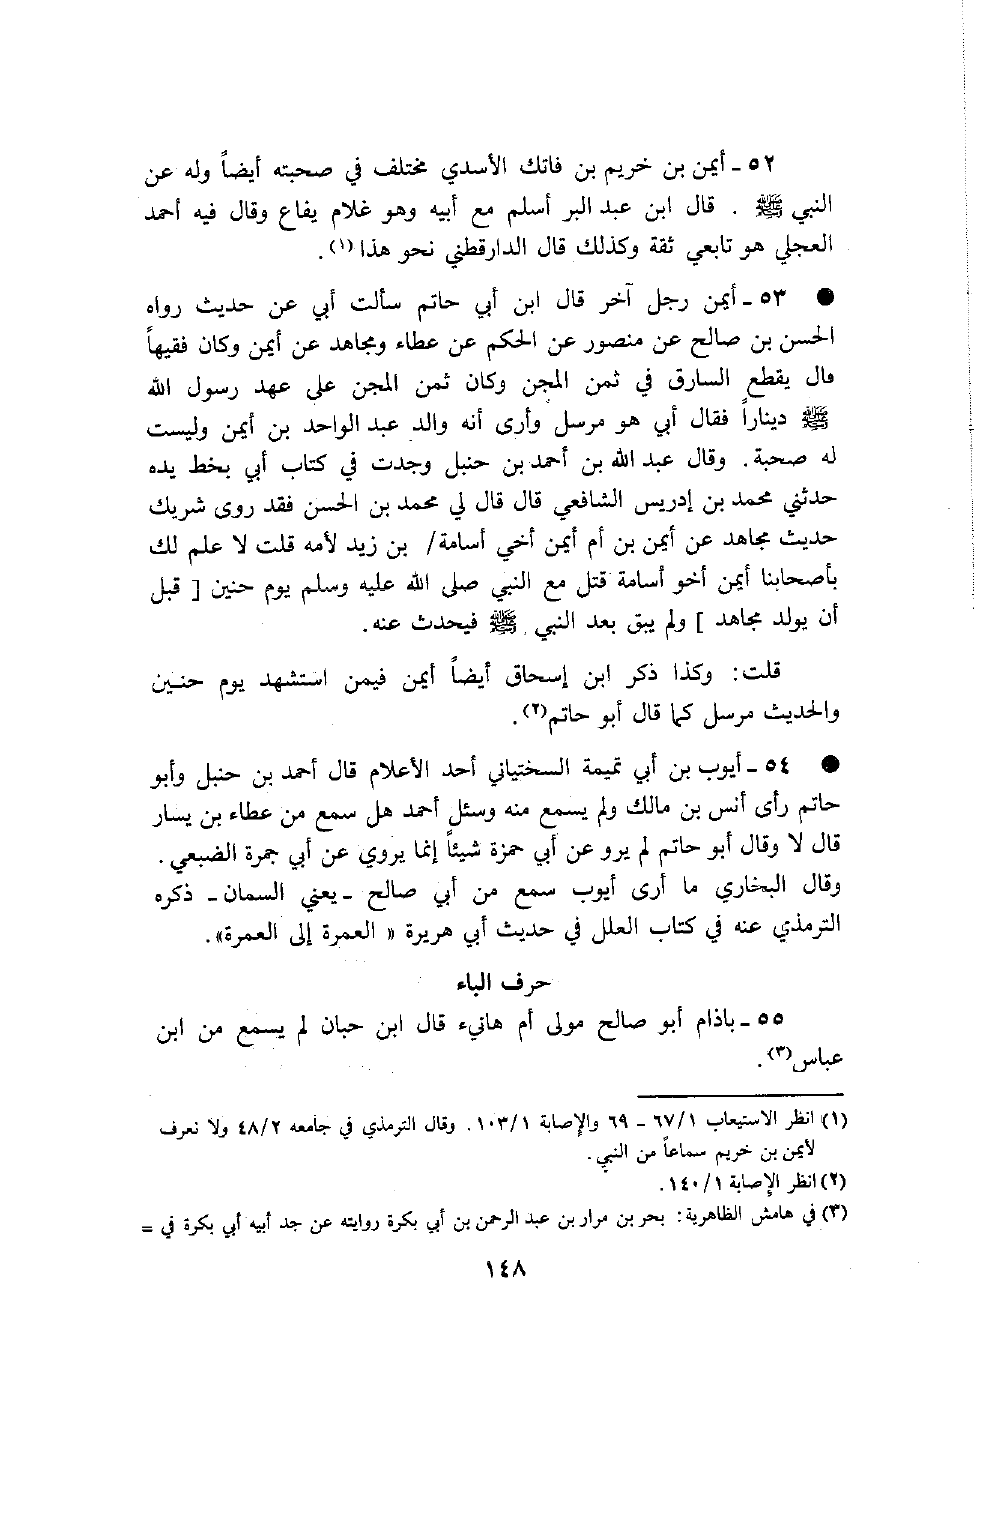 ٥٢ - أيمن بن خريم بن فاتك الأسدي مختلف في صحبته أيضاً وله عن
النبي ﷺ . قال ابن عبد البر أسلم مع أبيه وهو غلام يفاع وقال فيه أحمد
العجلي هو تابعي ثقة وكذلك قال الدارقطني نحو هذا (١).
● ٥٣ - أيمن رجل آخر قال ابن أبي حاتم سألت أبي عن حديث رواه
الحسن بن صالح عن منصور عن الحكم عن عطاء ومجاهد عن أيمن وكان فقيهاً
قال يقطع السارق في ثمن المجن وكان ثمن المجن على عهد رسول الله
ﷺ ديناراً فقال أبي هو مرسل وأرى أنه والد عبد الواحد بن أيمن وليست
له صحبة. وقال عبد الله بن أحمد بن حنبل وجدت في كتاب أبي بخط يده
حدثني محمد بن إدريس الشافعي قال قال لي محمد بن الحسن فقد روى شريك
حديث مجاهد عن أيمن بن أم أيمن أخي أسامة/ بن زيد لأمه قلت لا علم لك
بأصحابنا أيمن أخو أسامة قتل مع النبي صلى الله عليه وسلم يوم حنين [ قبل
أن يولد مجاهد ] ولم يبق بعد النبي ﷺ فيحدث عنه.
قلت: وكذا ذكر ابن إسحاق أيضاً أيمن فيمن استشهد يوم حنين
والحديث مرسل كما قال أبو حاتم(٢).
● ٥٤ - أيوب بن أبي تميمة السختياني أحد الأعلام قال أحمد بن حنبل وأبو
حاتم رأى أنس بن مالك ولم يسمع منه وسئل أحمد هل سمع من عطاء بن يسار
قال لا وقال أبو حاتم لم يرو عن أبي حمزة شيئاً إنما يروي عن أبي جمرة الضبعي.
وقال البخاري ما أرى أيوب سمع من أبي صالح - يعني السمان - ذكره
الترمذي عنه في كتاب العلل في حديث أبي هريرة « العمرة إلى العمرة».
حرف الباء
٥٥ - باذام أبو صالح مولى أم هانيء قال ابن حبان لم يسمع من ابن
عباس(٣).
(١) انظر الاستيعاب ١/ ٦٧ - ٦٩ والإصابة ١/ ١٠٣. وقال الترمذي في جامعه ٢/ ٤٨ ولا نعرف
لأيمن بن خريم سماعاً من النبي.
(٢) انظر الإصابة ١/ ١٤٠.
(٣) في هامش الظاهرية: بحر بن مرار بن عبد الرحمن بن أبي بكرة روايته عن جد أبيه أبي بكرة في =
١٤٨